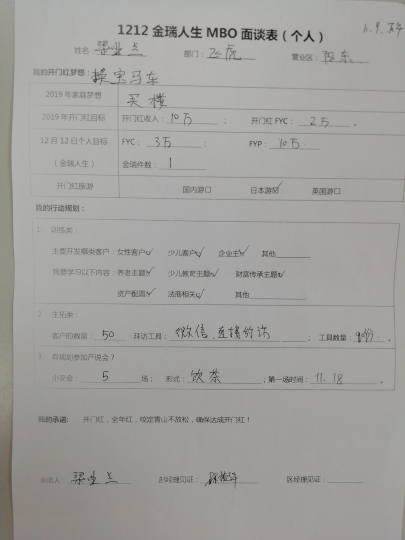 1212金瑞人生MBO面谈表（个人）
姓名 部门：飞虎 营业区：阳东
我的开门红梦想：换宝马车
2019年家庭梦想 买楼
2019年开门红目标 开门红收入：10万； 开门红FYC：2万。
12月12日个人目标 FYC：3万； FYP：10万
（金瑞人生） 金瑞件数：1
开门红旅游 国内游□ 日本游☑ 英国游□
我的行动规划：
1. 训练类
主要开发哪类客户：女性客户✓ 少儿客户✓ 企业主✓ 其他
我要学习以下内容：养老主题✓ 少儿教育主题✓ 财富传承主题✓
资产配置✓ 法商相关✓ 其他
2. 主拓类
客户拍数量：50 拜访工具：微信，直接约访； 工具数量：
3. 有规划参加产说会？
小交会：5 场； 形式：饮茶；第一场时间：11.18。
我的承诺： 开门红，全年红，咬定青山不放松，确保达成开门红！
承诺人 部经理见证： 区经理见证：